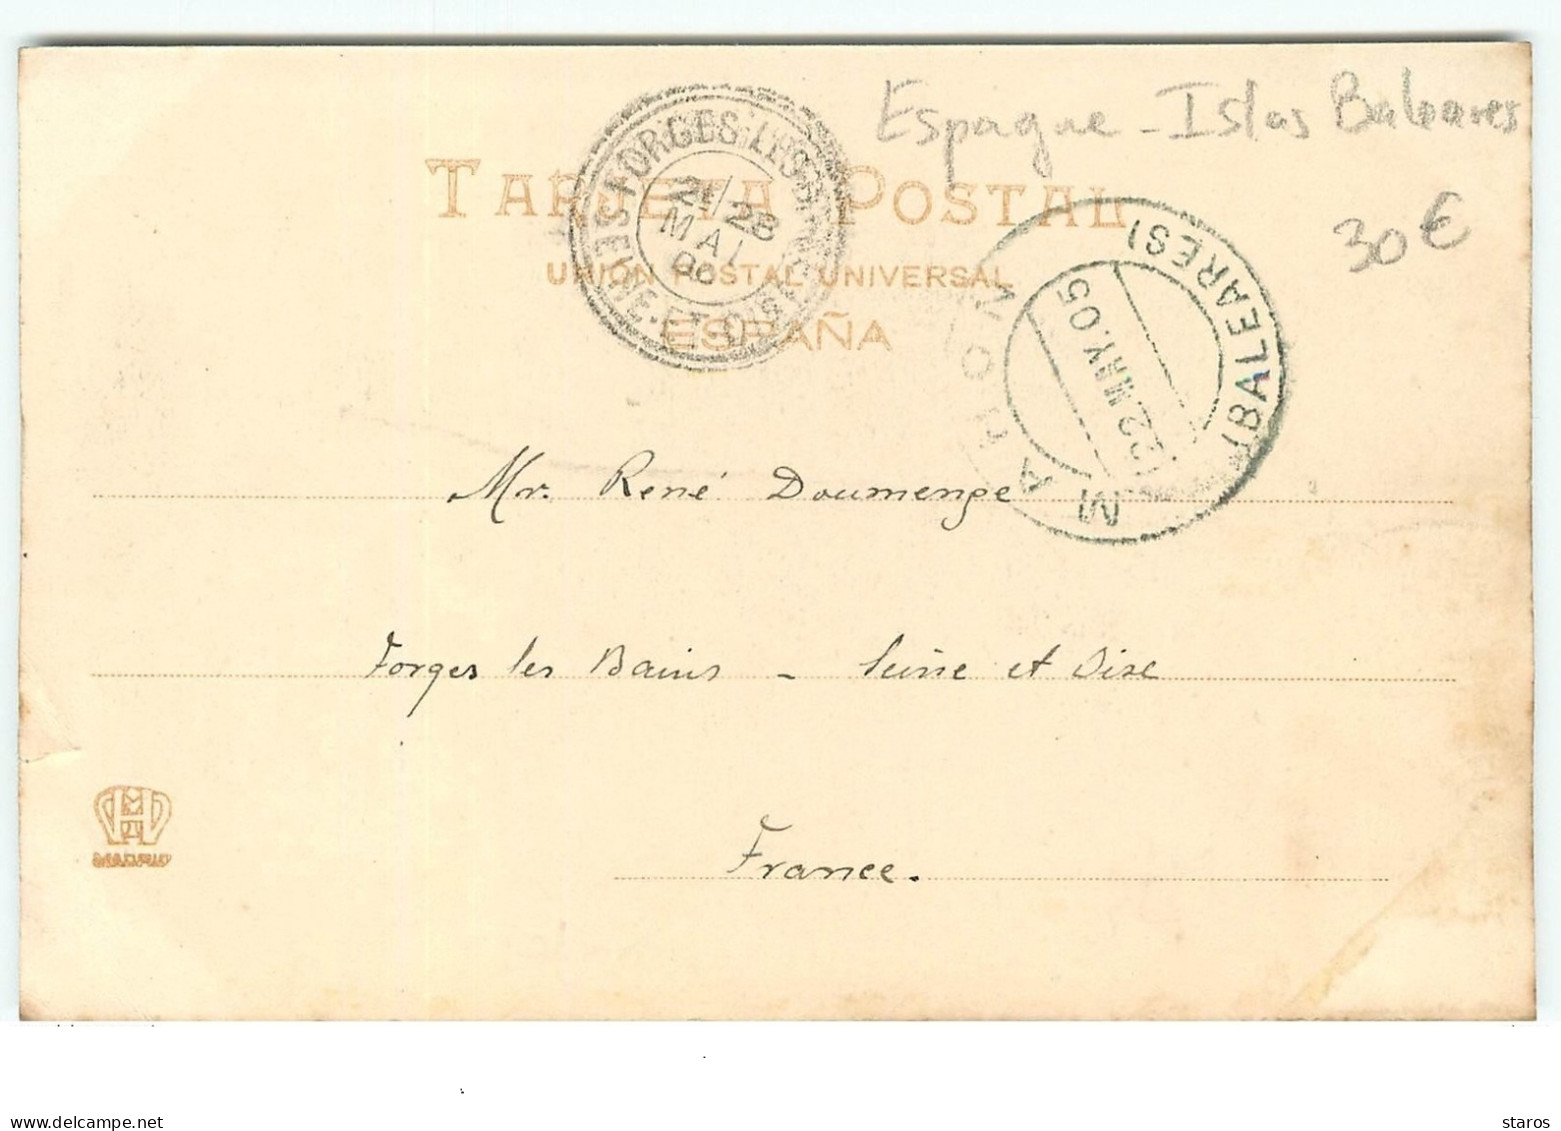 Espagne - Islas Baleares
30 €
TARJETA POSTAL
UNION POSTAL UNIVERSAL
ESPAÑA
FORGES-LES-BAINS
MAI
SEINE-ET-OISE
MAHON
(BALEARES)
22.MAY.05
Mr. René Doumenge
Forges les Bains - Seine et Oise
France.
MADRID
www.delcampe.net
staros